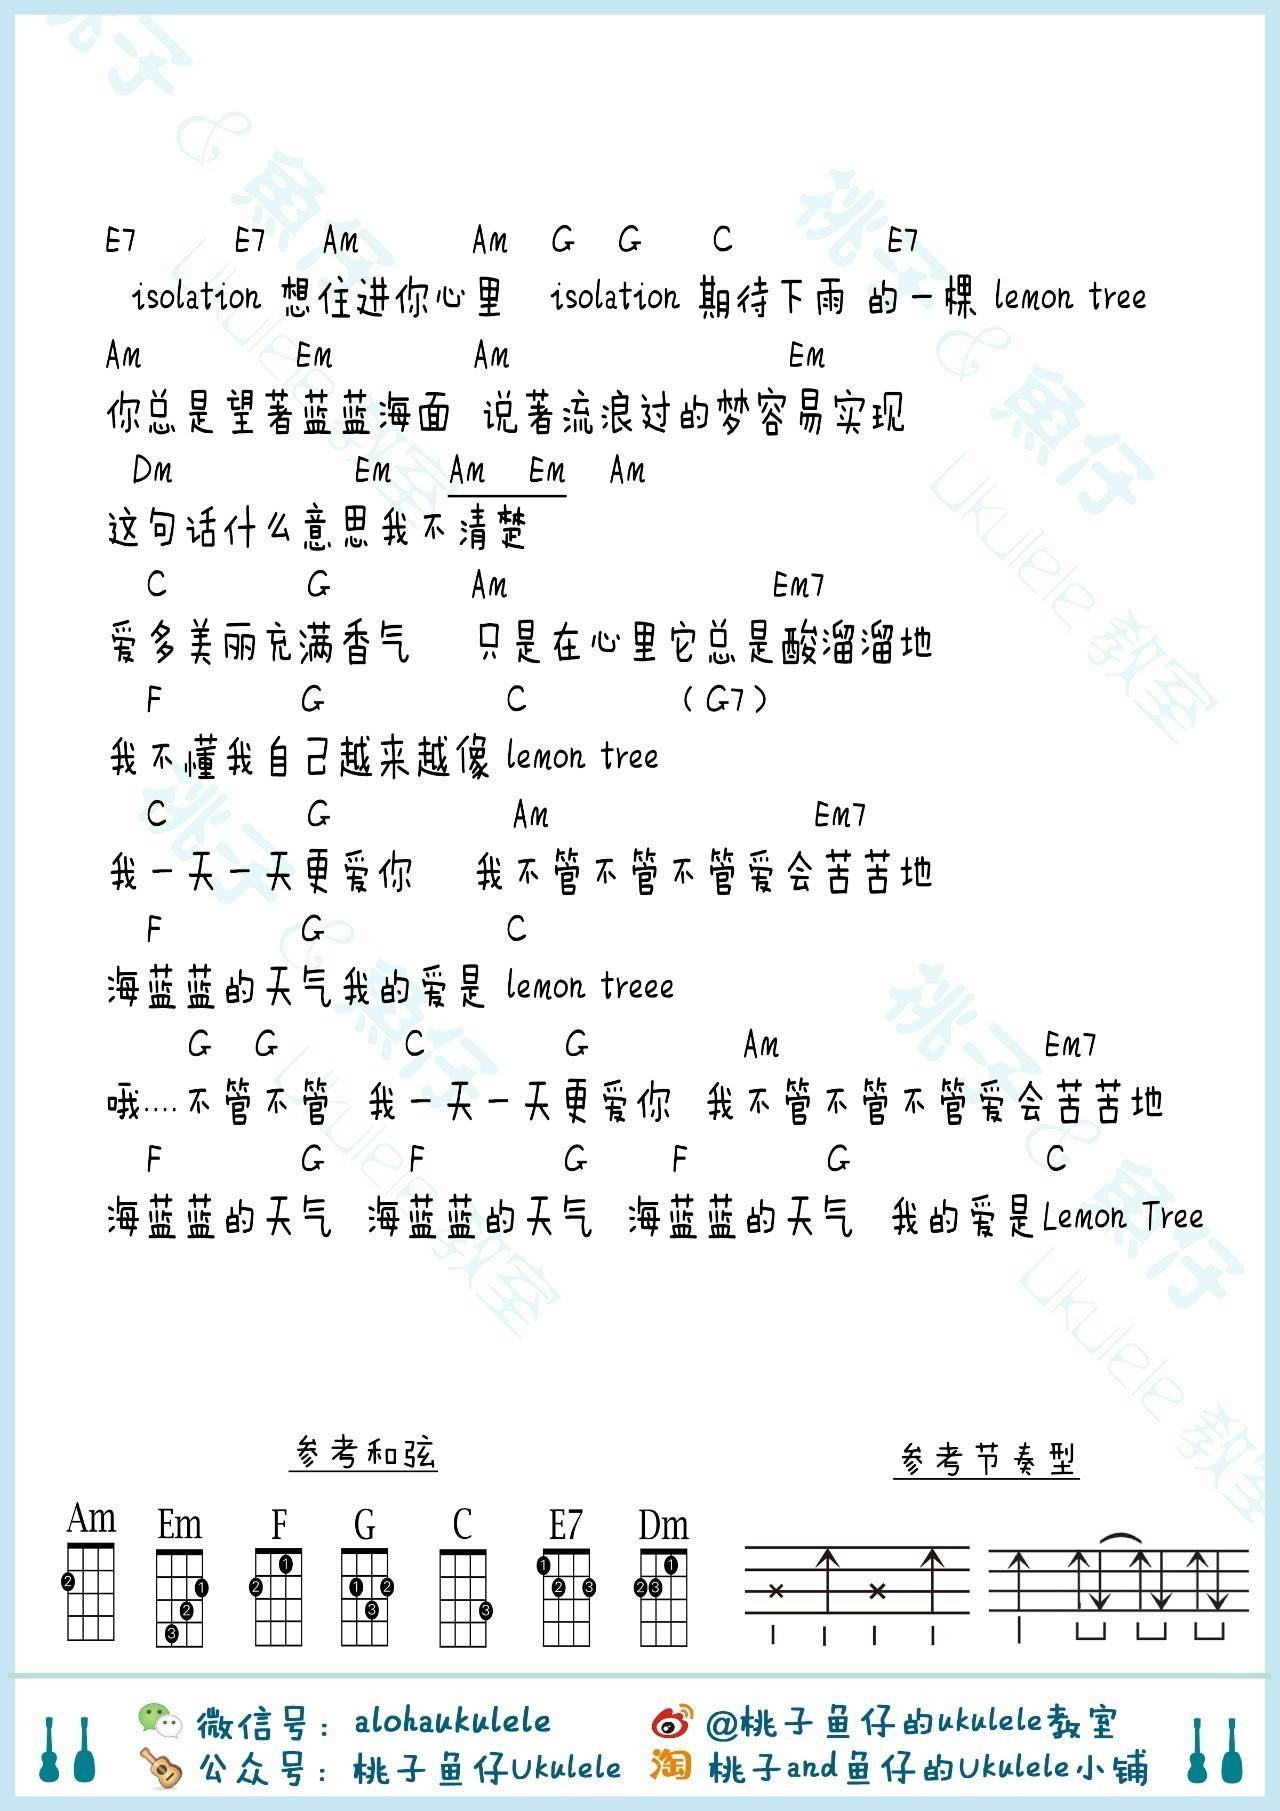 E7 E7 Am Am G G C E7
isolation 想住进你心里 isolation 期待下雨 的一棵 lemon tree
Am Em Am Em
你总是望著蓝蓝海面 说著流浪过的梦容易实现
Dm Em Am Em Am
这句话什么意思我不清楚
C G Am Em7
爱多美丽充满香气 只是在心里它总是酸溜溜地
F G C (G7)
我不懂我自己越来越像 lemon tree
C G Am Em7
我一天一天更爱你 我不管不管不管爱会苦苦地
F G C
海蓝蓝的天气我的爱是 lemon treee
G G C G Am Em7
哦....不管不管 我一天一天更爱你 我不管不管不管爱会苦苦地
F G F G F G C
海蓝蓝的天气 海蓝蓝的天气 海蓝蓝的天气 我的爱是Lemon Tree
参考和弦 参考节奏型
Am Em F G C E7 Dm
微信号：alohaukulele @桃子鱼仔的ukulele教室
公众号：桃子鱼仔Ukulele 淘 桃子and鱼仔的Ukulele小铺
桃子&魚仔
Ukulele教室
桃子&魚仔
Ukulele教室
桃子&魚仔
Ukulele教室
桃子&魚仔
Ukulele教室